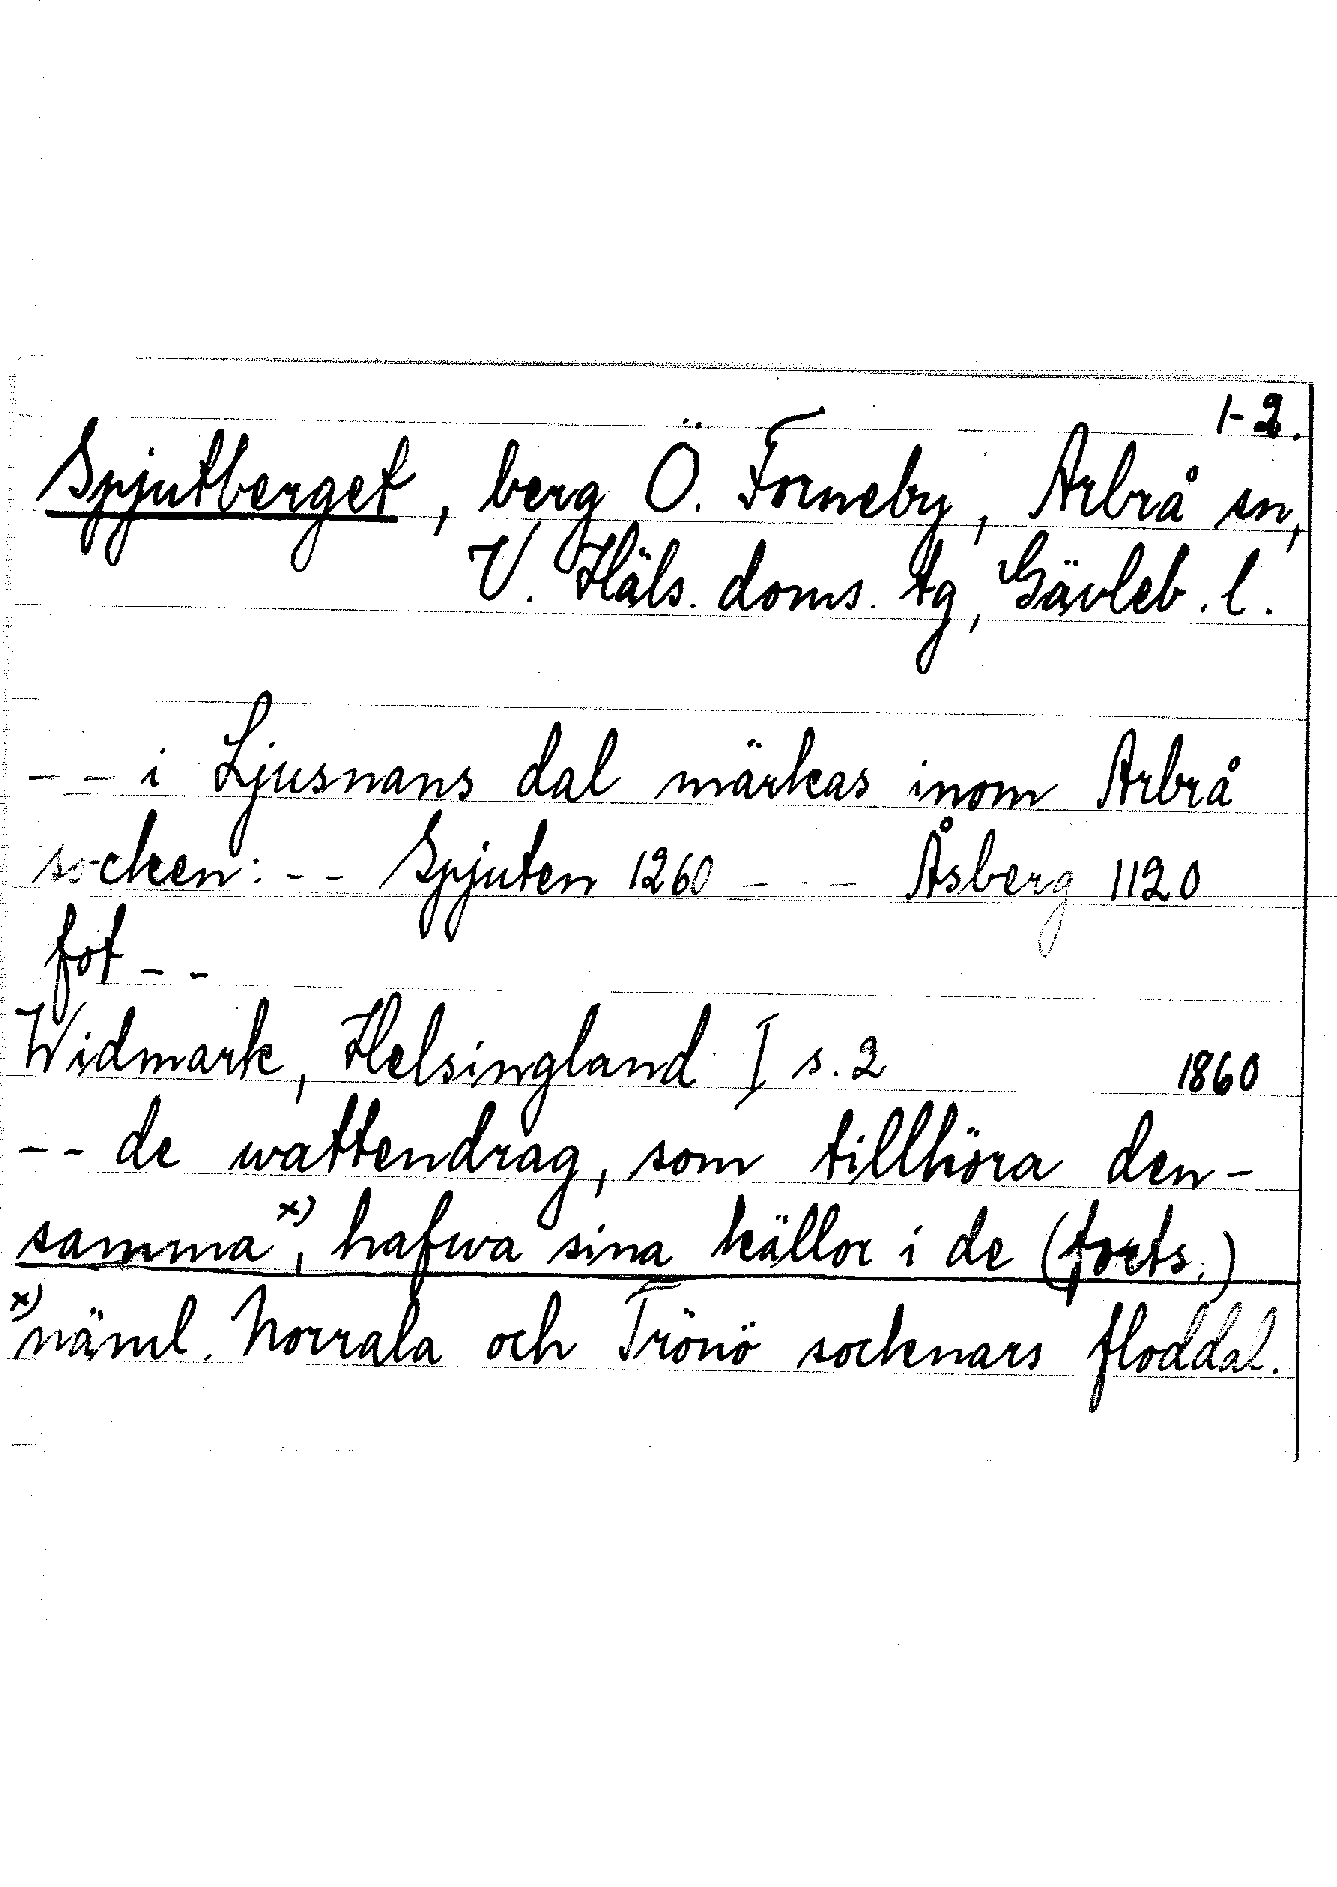 1-2.
Spjutberget, berg Ö. Forneby, Arbrå sn,
V. Häls. doms. tg, Gävleb. l.
-- i Ljusnans dal märkas inom Arbrå
socken: -- Spjuten 1260 --- Åsberg 1120
fot --
Widmark, Helsingland I s. 2 1860
-- de wattendrag, som tillhöra den-
samma x), hafwa sina källor i de (forts.)
x) näml. Norrala och Trönö socknars floddal.